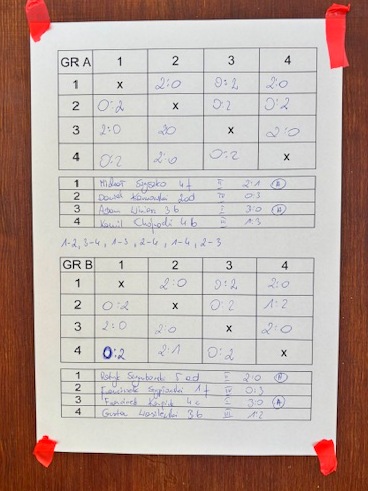 GR A 1 2 3 4
1 x 2:0 0:2 2:0
2 0:2 x 0:2 0:2
3 2:0 20 x 2:0
4 0:2 2:0 0:2 x
1 4f II 2:1 A
2 Dawid 2od IV 0:3
3 Adam 3b I 3:0 A
4 Kamil 4b III 1:3
1-2, 3-4, 1-3, 2-4, 1-4, 2-3
GR B 1 2 3 4
1 x 2:0 0:2 2:0
2 0:2 x 0:2 1:2
3 2:0 2:0 x 2:0
4 0:2 2:1 0:2 x
1 5 od 2:0 A
2 Franciszek 1f IV 0:3
3 Franciszek 4c I 3:0 A
4 3b III 1:2